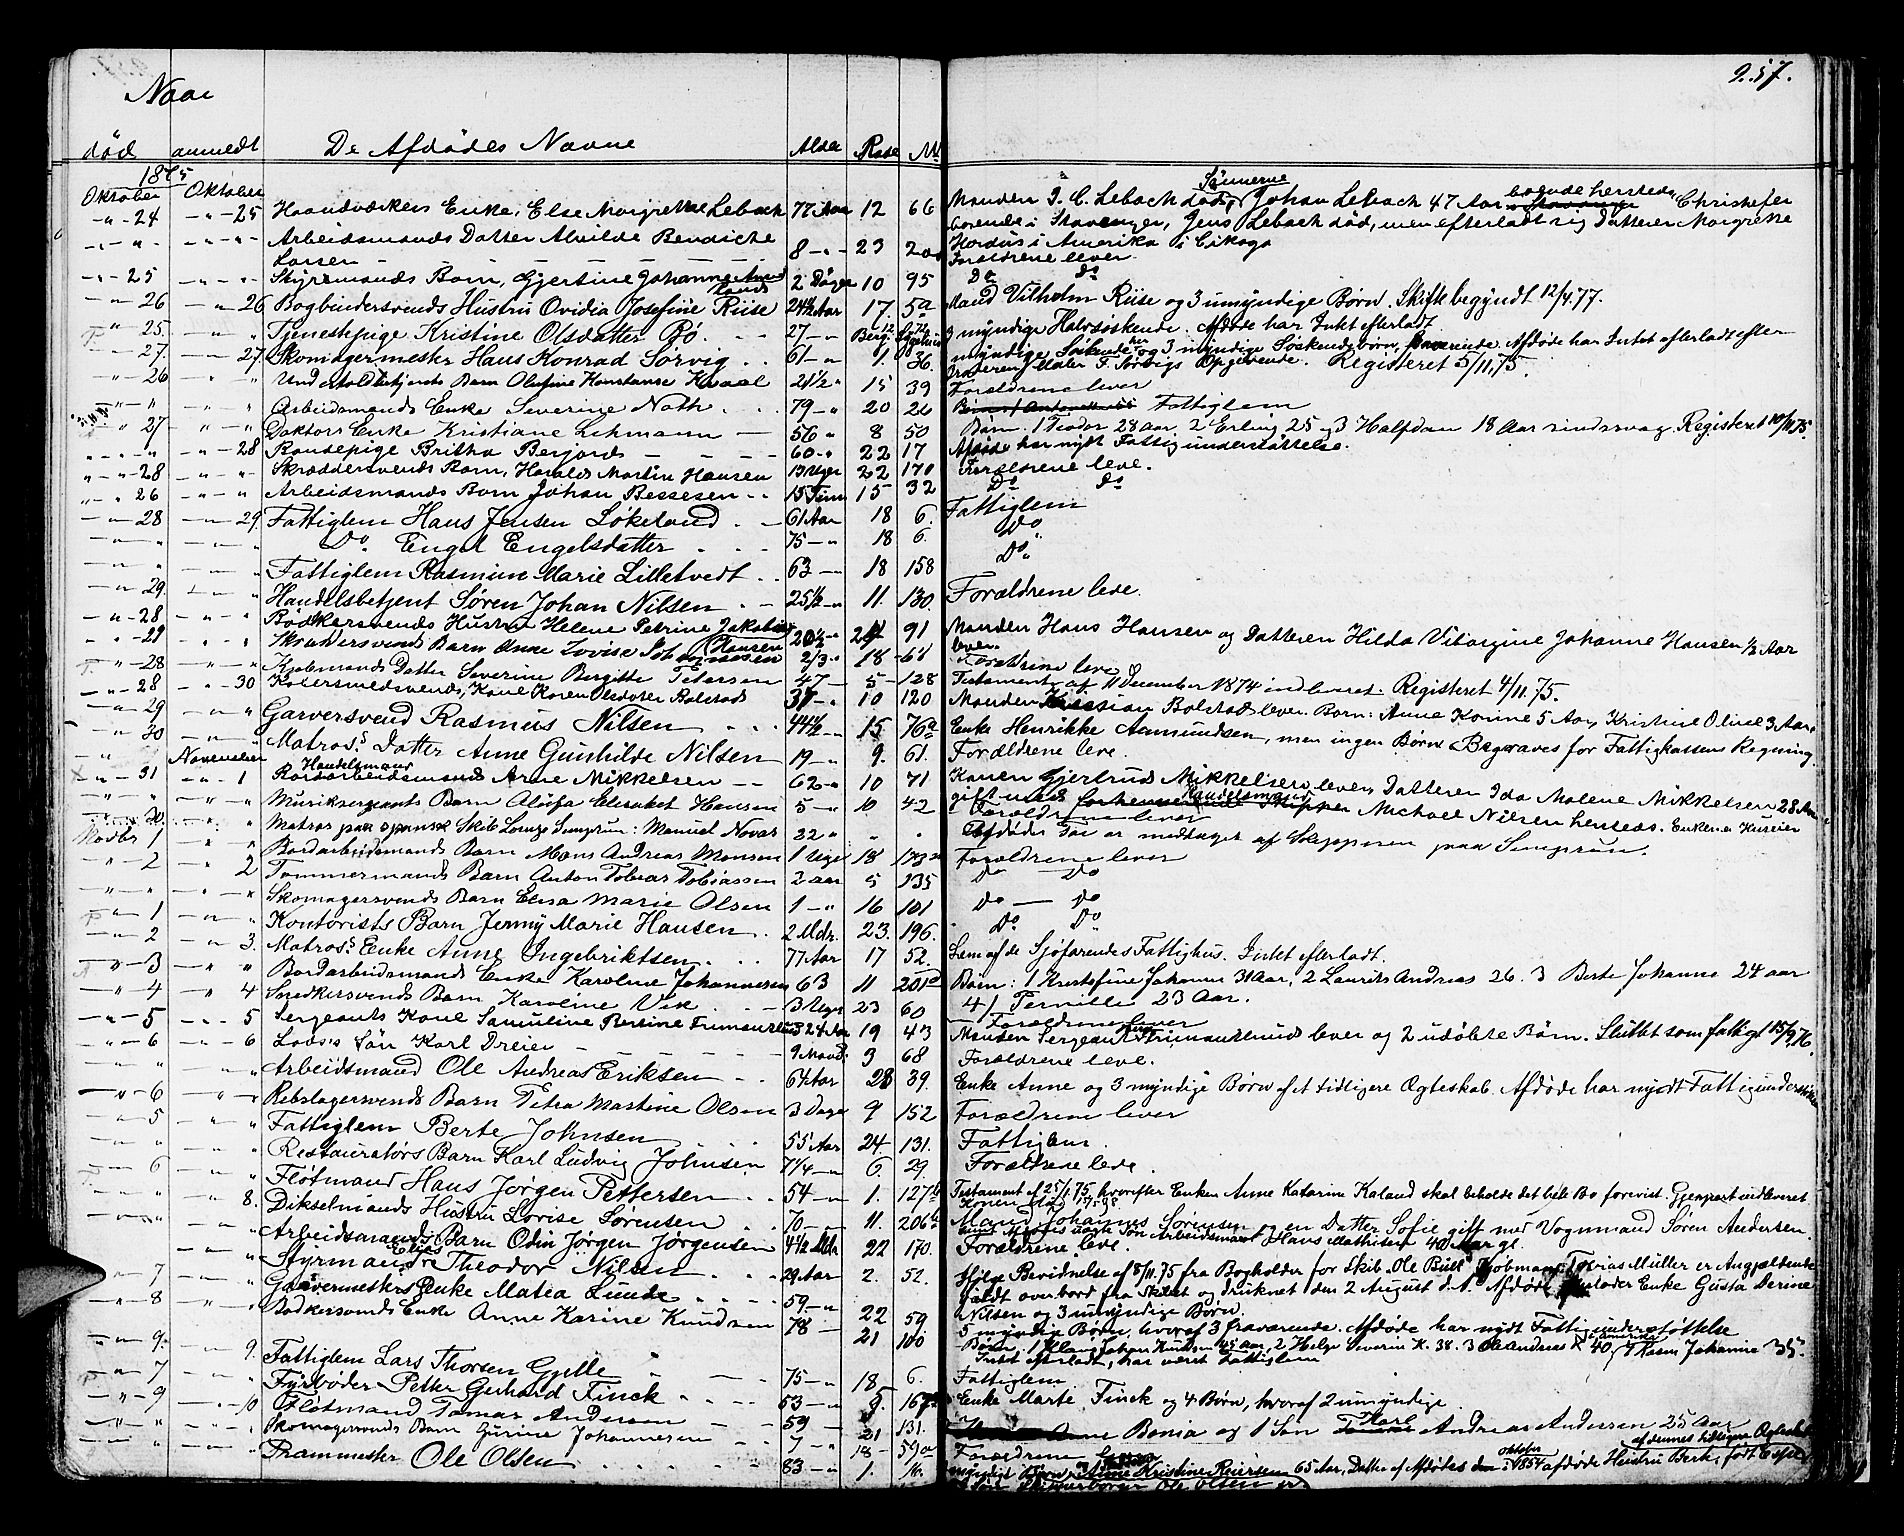 257.
Naar
død anmeldt De Afdødes Navne Alder Rode No
1875
Oktober Oktober
24 25 Haandværkers Enke, Else Margrethe Lebach 77 Aar 12 66 Manden J. C. Lebach død, Sønnerne Johan Lebach 47 Aar boende hersteds, Christofer
boende i Stavanger, Jens Lebach død, men efterladt sig Datteren Margrethe
Arbeidsmands Datter Alvilde Bendicte 8 23 Hordus i Amerika i Cikago
Larsen Forældrene lever
25 Styrmands Barn, Gjertine Johanne 2 Døgn 10 95 Do Do
26 26 Bogbindersvends Hustru Ovidia Josefine Riise 24½ Aar 17. 5a Mand Vilhelm Riise og 3 umyndige Børn. Skifte begyndt 12/4.77.
25. Tjenestepige Kristine Olsdatter Bø. 27 myndige Halvsøskende. Afdøde har Intet efterladt
27. 27 Skomagermester Hans Konrad Sørvig 61 1. 36. myndige Søskende og 3 myndige Søskendebørn, fraværende. Afdøde har Intet efterladt efter
Broderen Maler F. Sørvigs Opgivende. Registeret 5/11.75.
26 Underfoldbetjents Barn Olufine Konstanse Kvaal 2½ 15 39 Forældrene lever
Arbeidsmands Enke Severine Nath 79 20 Fattiglem
27 Doktors Enke Kristiane Lehmann 56 8 50 Børn: 1 Teodor 28 aar, 2 Erling 25 og 3 Halfdan 18 Aar sindssvag. Registeret 10/11.75.
28 Bondepige Britha Berjords 60 22 17 Afdøde har nydt Fattigunderstøttelse.
28 Skræddersvends Barn, Harald Martin Hansen 13 Uger 22 170 Forældrene leve.
26 Arbeidsmands Barn Johan Bessesen 15 Tim 15 32 Do Do
28 29 Fattiglem Hans Jensen Løkeland 61 Aar 18 6. Fattiglem
Do. Engel Engelsdatter 75 18 6. Do
Fattiglem Rasmine Marie Lilletvedt 63 18 158 Do.
29. Handelsbetjent Søren Johan Nilsen 25½ 11. 130. Forældrene leve.
28 Bødkersvends Hustru Helene Petrine Jakobine Hansen 20½ 24 91 Manden Hans Hansen og Datteren Hilda Vitargine Johanne Hansen ½ Aar
lever.
29 Skræddersvend Barn Anne Lovise Johannesen 2/3 18 Forældrene leve
28 Kjøbmands Datter Severine Bergitte Petersen 47 5 128 Testament af 11 December 1874 indleveret. Registeret 4/11.75.
28 30 Kobersmedsvends Kone Karen Olsdatter Bolstad 37 10 120 Manden Kristian Bolstad lever. Børn: Anne Konine 5 Aar, Kristine Oline 3 Aar.
29 Garversvend Rasmus Nilsen 44½ 15 76a Enke Henrikke Aanundsen, men ingen Børn. Begraves for Fattigkassens Regning
30 Matros's Datter Anne Gunhilde Nilsen 19 9. 61. Forældrene leve.
November
31 1 Handelsmand Arne Mikkelsen 62 10 71 Konen Gjertrud Mikkelsen lever, Datteren Ida Malene Mikkelsen 28 Aar
gift med Handelsmand Michael Nilsen hersteds.
Musiksergeants Barn Alvifa Elisabet Hansen 5 10 42 Forældrene lever
30. Matros paa spansk Skib Lorenzo Semprun: Manuel Novas 22 Afdødes Tøi er medtaget af Skipperen paa Semprun.
Novbr 1 Bordarbeidsmands Barn Mons Andreas Monsen 1 Uge 18 Forældrene lever
2 2 Tømmermands Barn Anton Tobias Tobiassen 2 aar 5 135 Do Do
Skomagersvends Barn Elisa Marie Olsen 1 16 101 Do Do
1 Kontorists Barn Jenny Marie Hansen 2 Mdr. 23. 196. Do Do
2 3. Matros's Enke Anne Ingebriktsen 77 Aar 17 52. Lem af de Sjøfarendes Fattighus. Intet efterladt.
3 Bordarbeidsmands Enke Karoline Johannesen 63 11 201a Børn: 1 Kristofine Johanne 31 Aar, 2 Laurits Andreas 26. 3 Berte Johanne 24 aar
4/ Pernille 23 Aar.
4 4 Snedkersvends Barn Karoline Vik 3 Uger 23 60 Forældrene lever
5 5 Sergeants Kone Samuline Bertine 24 Aar 19 43 Manden Sergeant lever og 2 udøbte Børn. Sluttet som fattigt 15/9.76.
6 6 Lods's Søn Karl Dreier 9 Maand. 3 68 Forældrene leve.
Arbeidsmand Ole Andreas Eriksen 64 Aar 28 39. Enke Anne og 3 myndige Børn af et tidligere Ægteskab. Afdøde har nydt Fattigunderstøttelse
6 Rebslagersvends Barn Petra Martine Olsen 3 Dage 9 152 Forældrene lever
5 Fattiglem Berte Johnsen 55 Aar 24 131. Fattiglem.
Restauratørs Barn Karl Ludvig Johnsen 7¼ 6. 29. Forældrene leve.
6 Fløtmand Hans Jørgen Pettersen 54 1. 127b Testament af 25/1.75, hvorefter Enken Anne Katarina Kaland skal beholde det hele Bo forevist. Gjenpart indleveret
8. Dikselmands Hustru Lovise Sørensen 70 11. 206b Mand Johannes Sørensen og en Datter Sofie gift med Vognmand Søren Andersen
Søn Arbeidsmand Hans Mathisen 40 Aar gl.
Arbeidsmands Barn Odin Jørgen Jørgensen 4½ Mdr 22 170. Forældrene leve.
Styrmand Elias Theodor Nilsen 29 Aar 2. 52. Ifølge Bevidnelse af 8/11.75 fra Bogholder for Skib. Ole Bull Kjøbmand Tobias Müller er Angjældende
faldt overbord fra Skibet og druknet den 2 August d. A. Afdøde efterlader Enke Gusta Serine
Nilsen og 3 umyndige Børn.
7 Garvermesters Enke Matia Lunde 59 22 59 5 myndige Børn, hvoraf 3 fraværende. Afdøde har nydt Fattigunderstøttelse
8 Bødkersvends Enke Anne Karine Knudsen 78 21 100 Børn: 1 Klaus Johan Knudsen 45 aar, 2 Helge Severin K. 38. 3 Ole Andreas K i Amerika 40, 4 Rasm Johanne 35.
Intet efterladt, har været Fattiglem
9. 9. Fattiglem Lars Thorsen Gjelle 75 18 6. Fattiglem
7 Fyrbøder Petter Gerhard Finck 53 8. Enke Marte Finck og 4 Børn, hvoraf 2 umyndige.
9 10 Fløtmand Tomas Andersen 59 21 131. Bonia og 1 Søn Karl Andreas Andersen 25 Aar
Skomagersvends Barn Gurine Johannesen 7 18 59a Forældrene leve
Prammester Ole Olsen 83 1. 65 Aar, Datter af Afdødes i Oktober 1854 afdøde Hustru Berte, født
af dennes tidligere Ægteskab